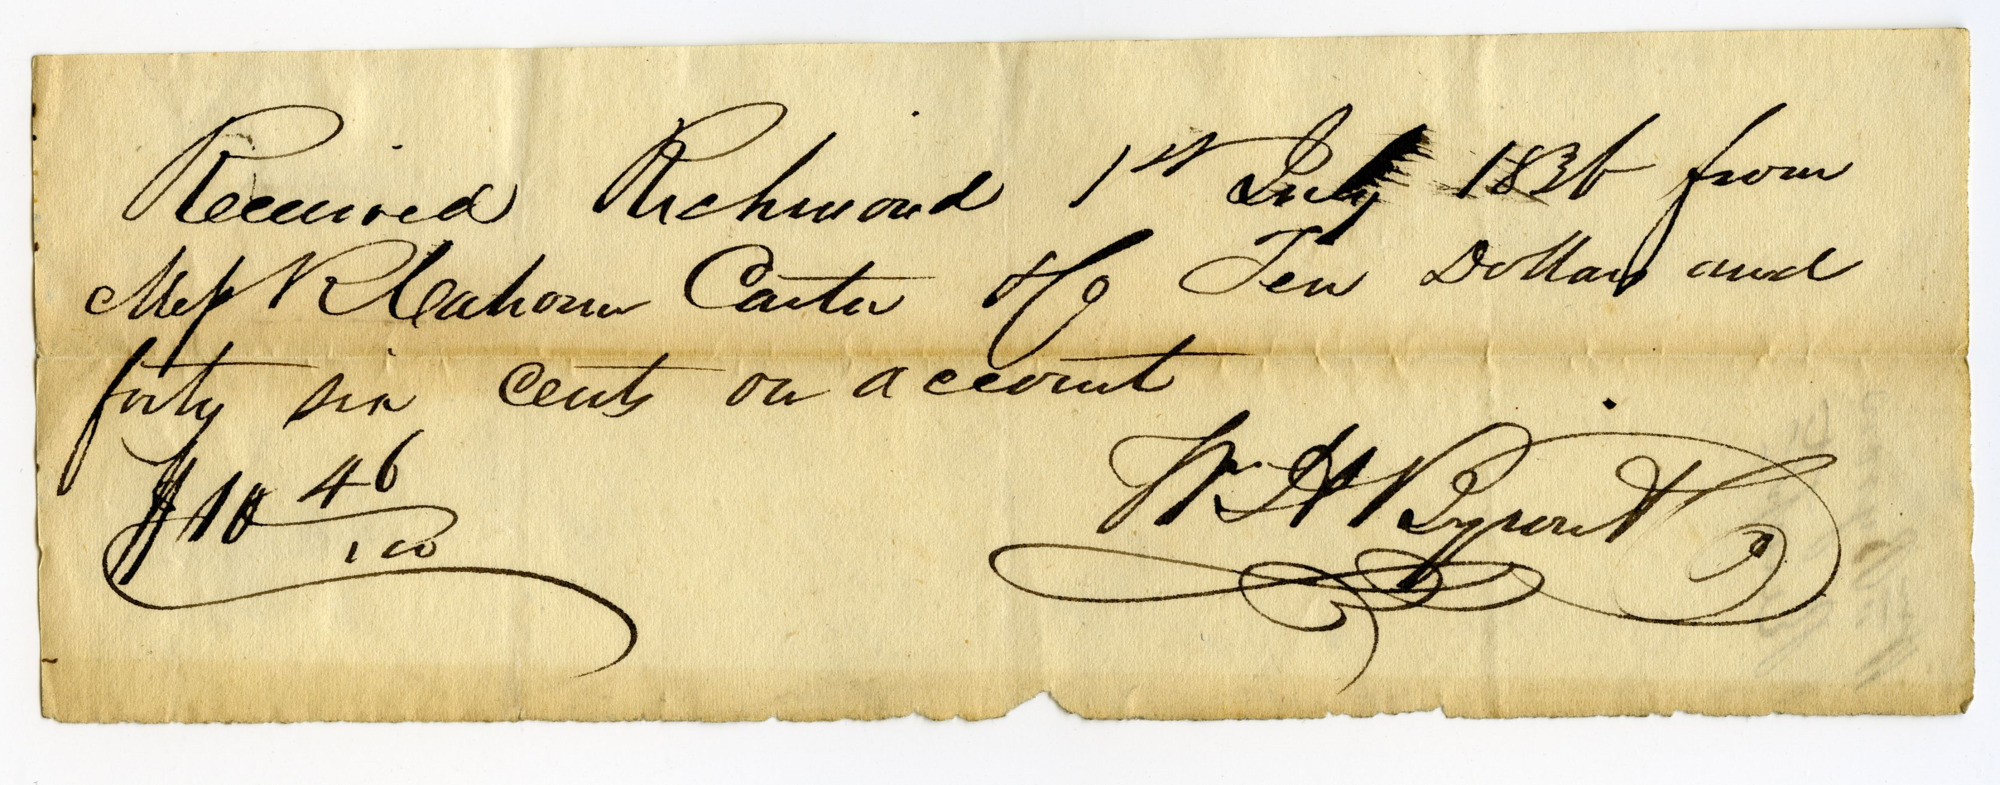 Received Richmond 1st July 1836 from
Mess R Cahoun Carter & Co Ten Dollars and
forty six cents on account
$10 46/100
Wm H